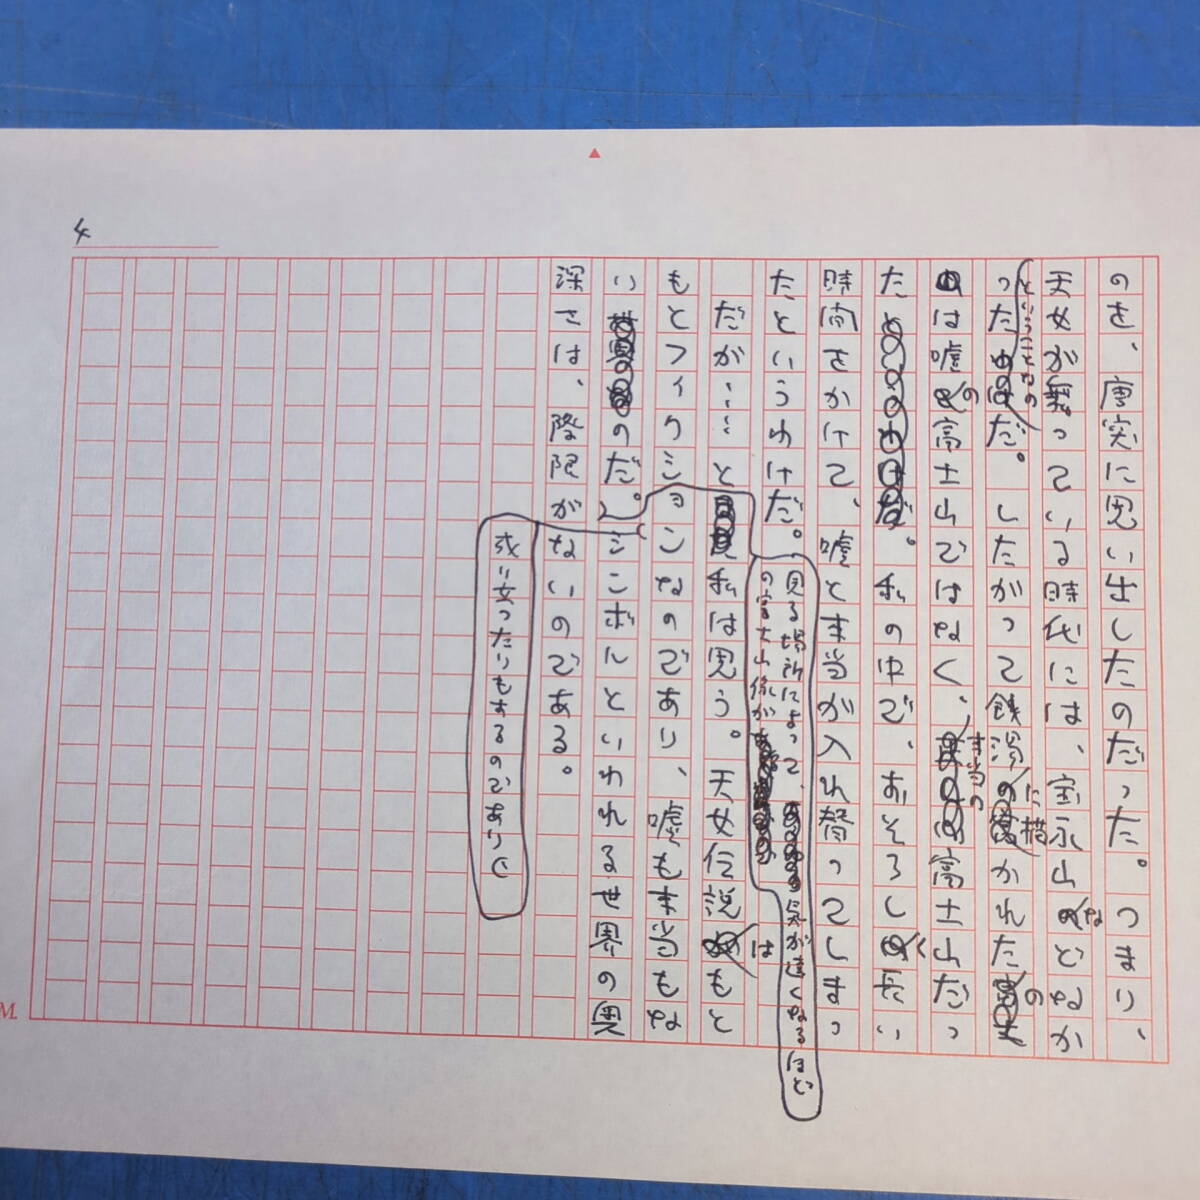 4
のを、唐突に思い出したのだった。つまり、
天女が舞っている時代には、宝永山などなか
ということなの
ったのだ。したがって銭湯に描かれたの
は嘘の富士山ではなく、本当の富士山だっ
た。私の中で、おそろしく長い
時間をかけて、嘘と本当が入れ替ってしまっ
たというわけだ。
見る場所によって、が違くなるほど
の富士山像が
だが……と私は思う。天女伝説はもと
もとフィクションなのであり、嘘も本当もな
いのだ。シンボルといわれる世界の奥
深さは、際限がないのである。
成り立ったりもするのであり
M.